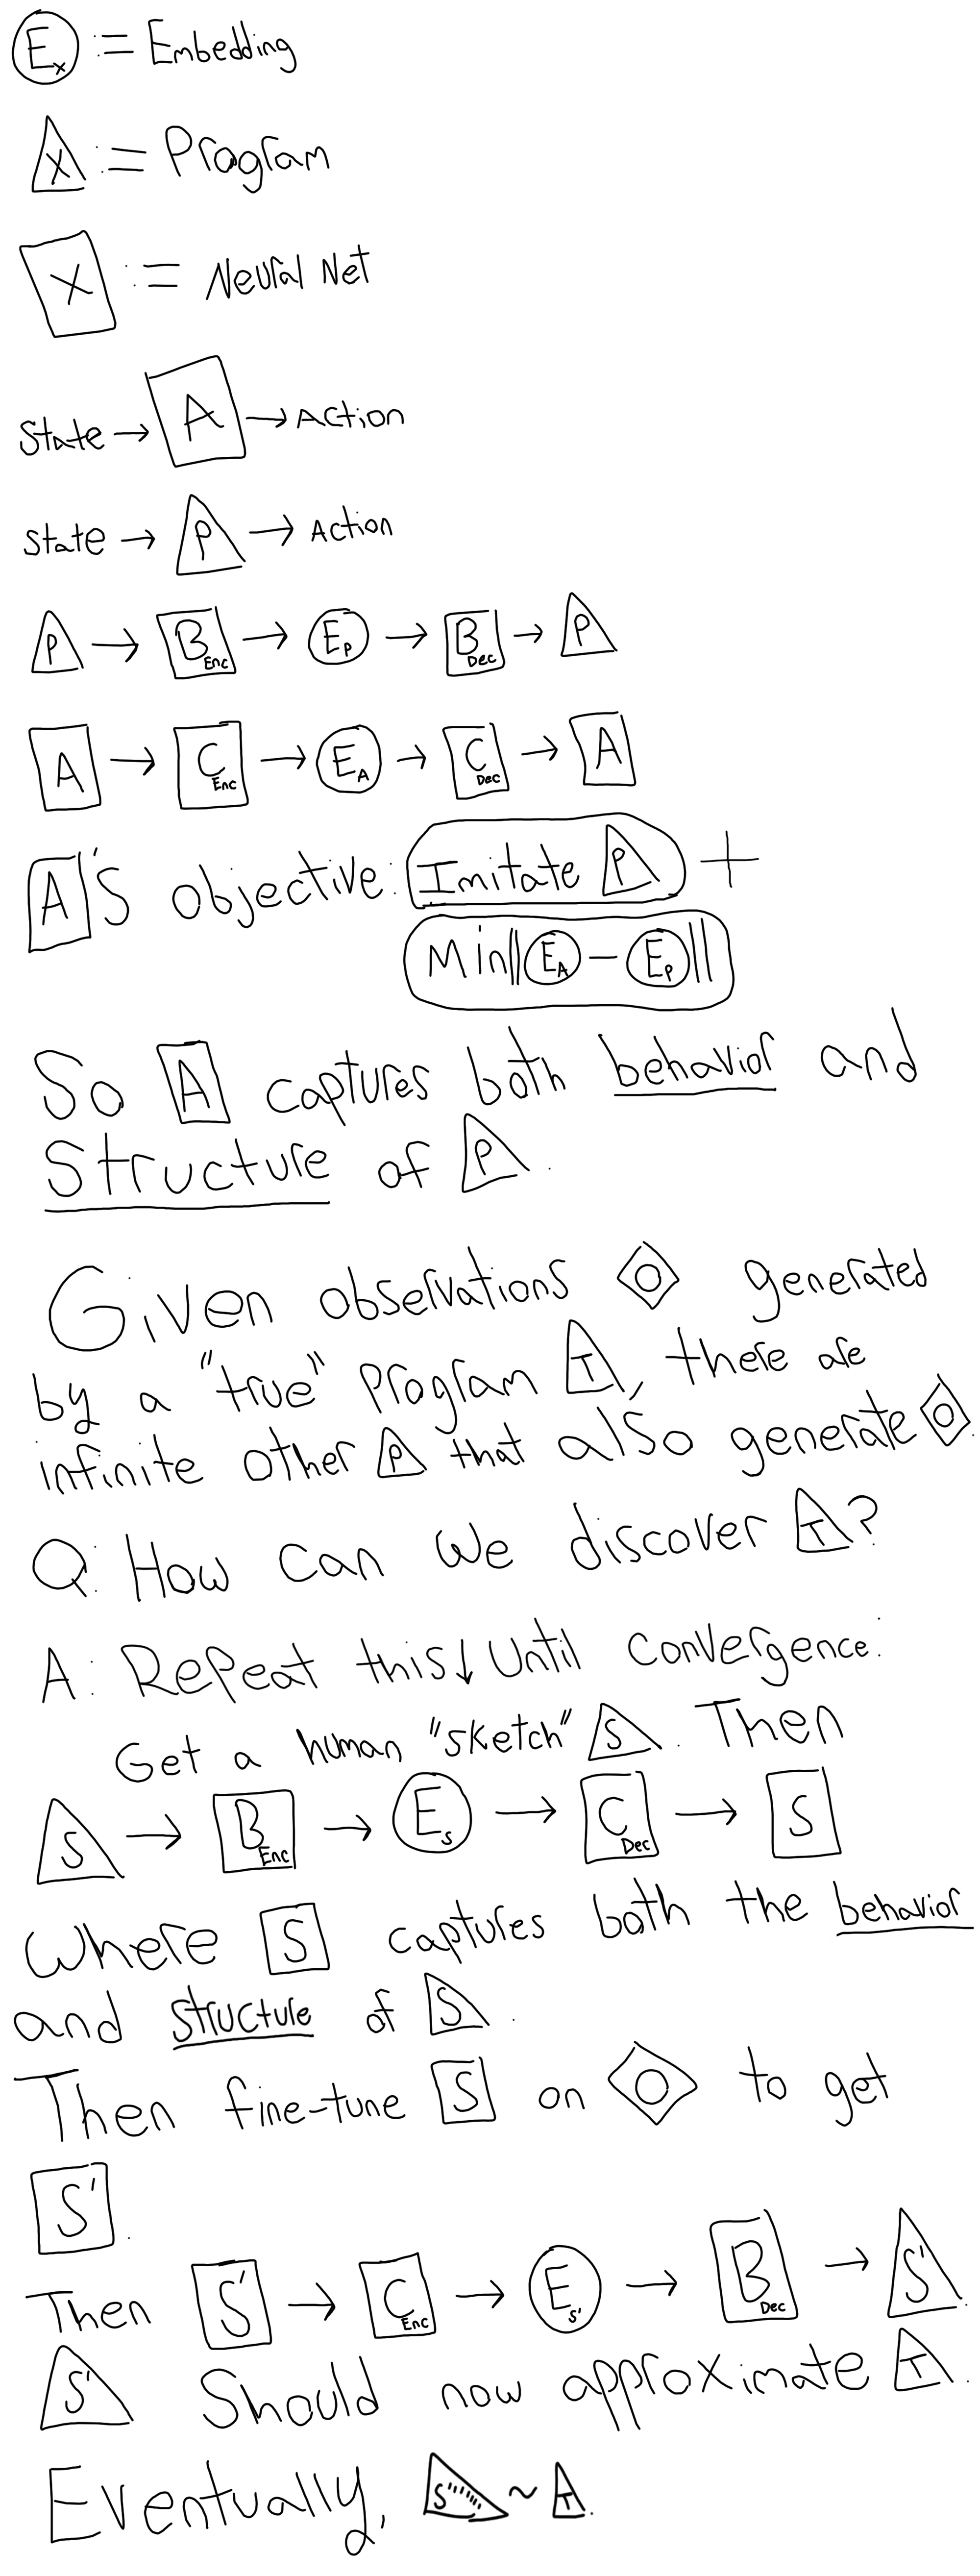 Ex := Embedding
X := Program
X := Neural Net
State → A → Action
State → P → Action
P → B Enc → Ep → B Dec → P
A → C Enc → EA → C Dec → A
A's objective: Imitate P +
Min||EA - Ep||
So A captures both behavior and
Structure of P.
Given observations O generated
by a "true" program T, there are
infinite other P that also generate O.
Q: How can we discover T?
A: Repeat this↓ Until convergence:
Get a human "sketch" S. Then
S → B Enc → Es → C Dec → S
Where S captures both the behavior
and structure of S.
Then fine-tune S on O to get
S'.
Then S' → C Enc → Es' → B Dec → S'.
S' Should now approximate T.
Eventually, S''''''' ~ T.